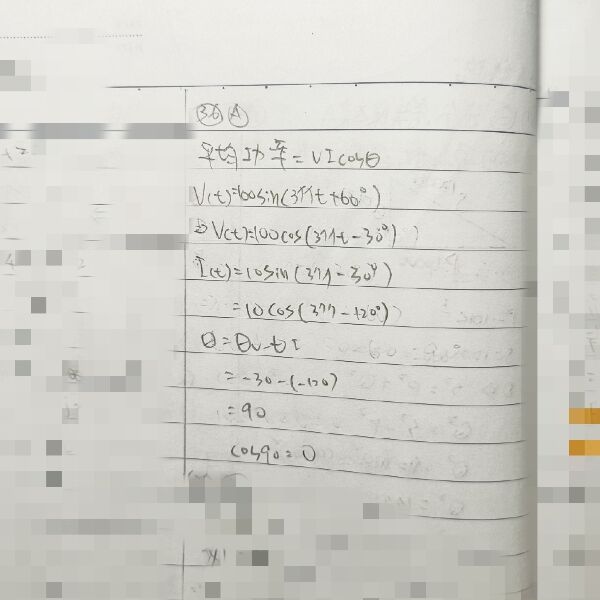 36 A
平均功率=VIcosθ
V(t)=100sin(377t+60°)
V(t)=100cos(377t-30°)
I(t)=10sin(377-30°)
=10cos(377-120°)
θ=θv-θI
=-30-(-120)
=90
cos90=0